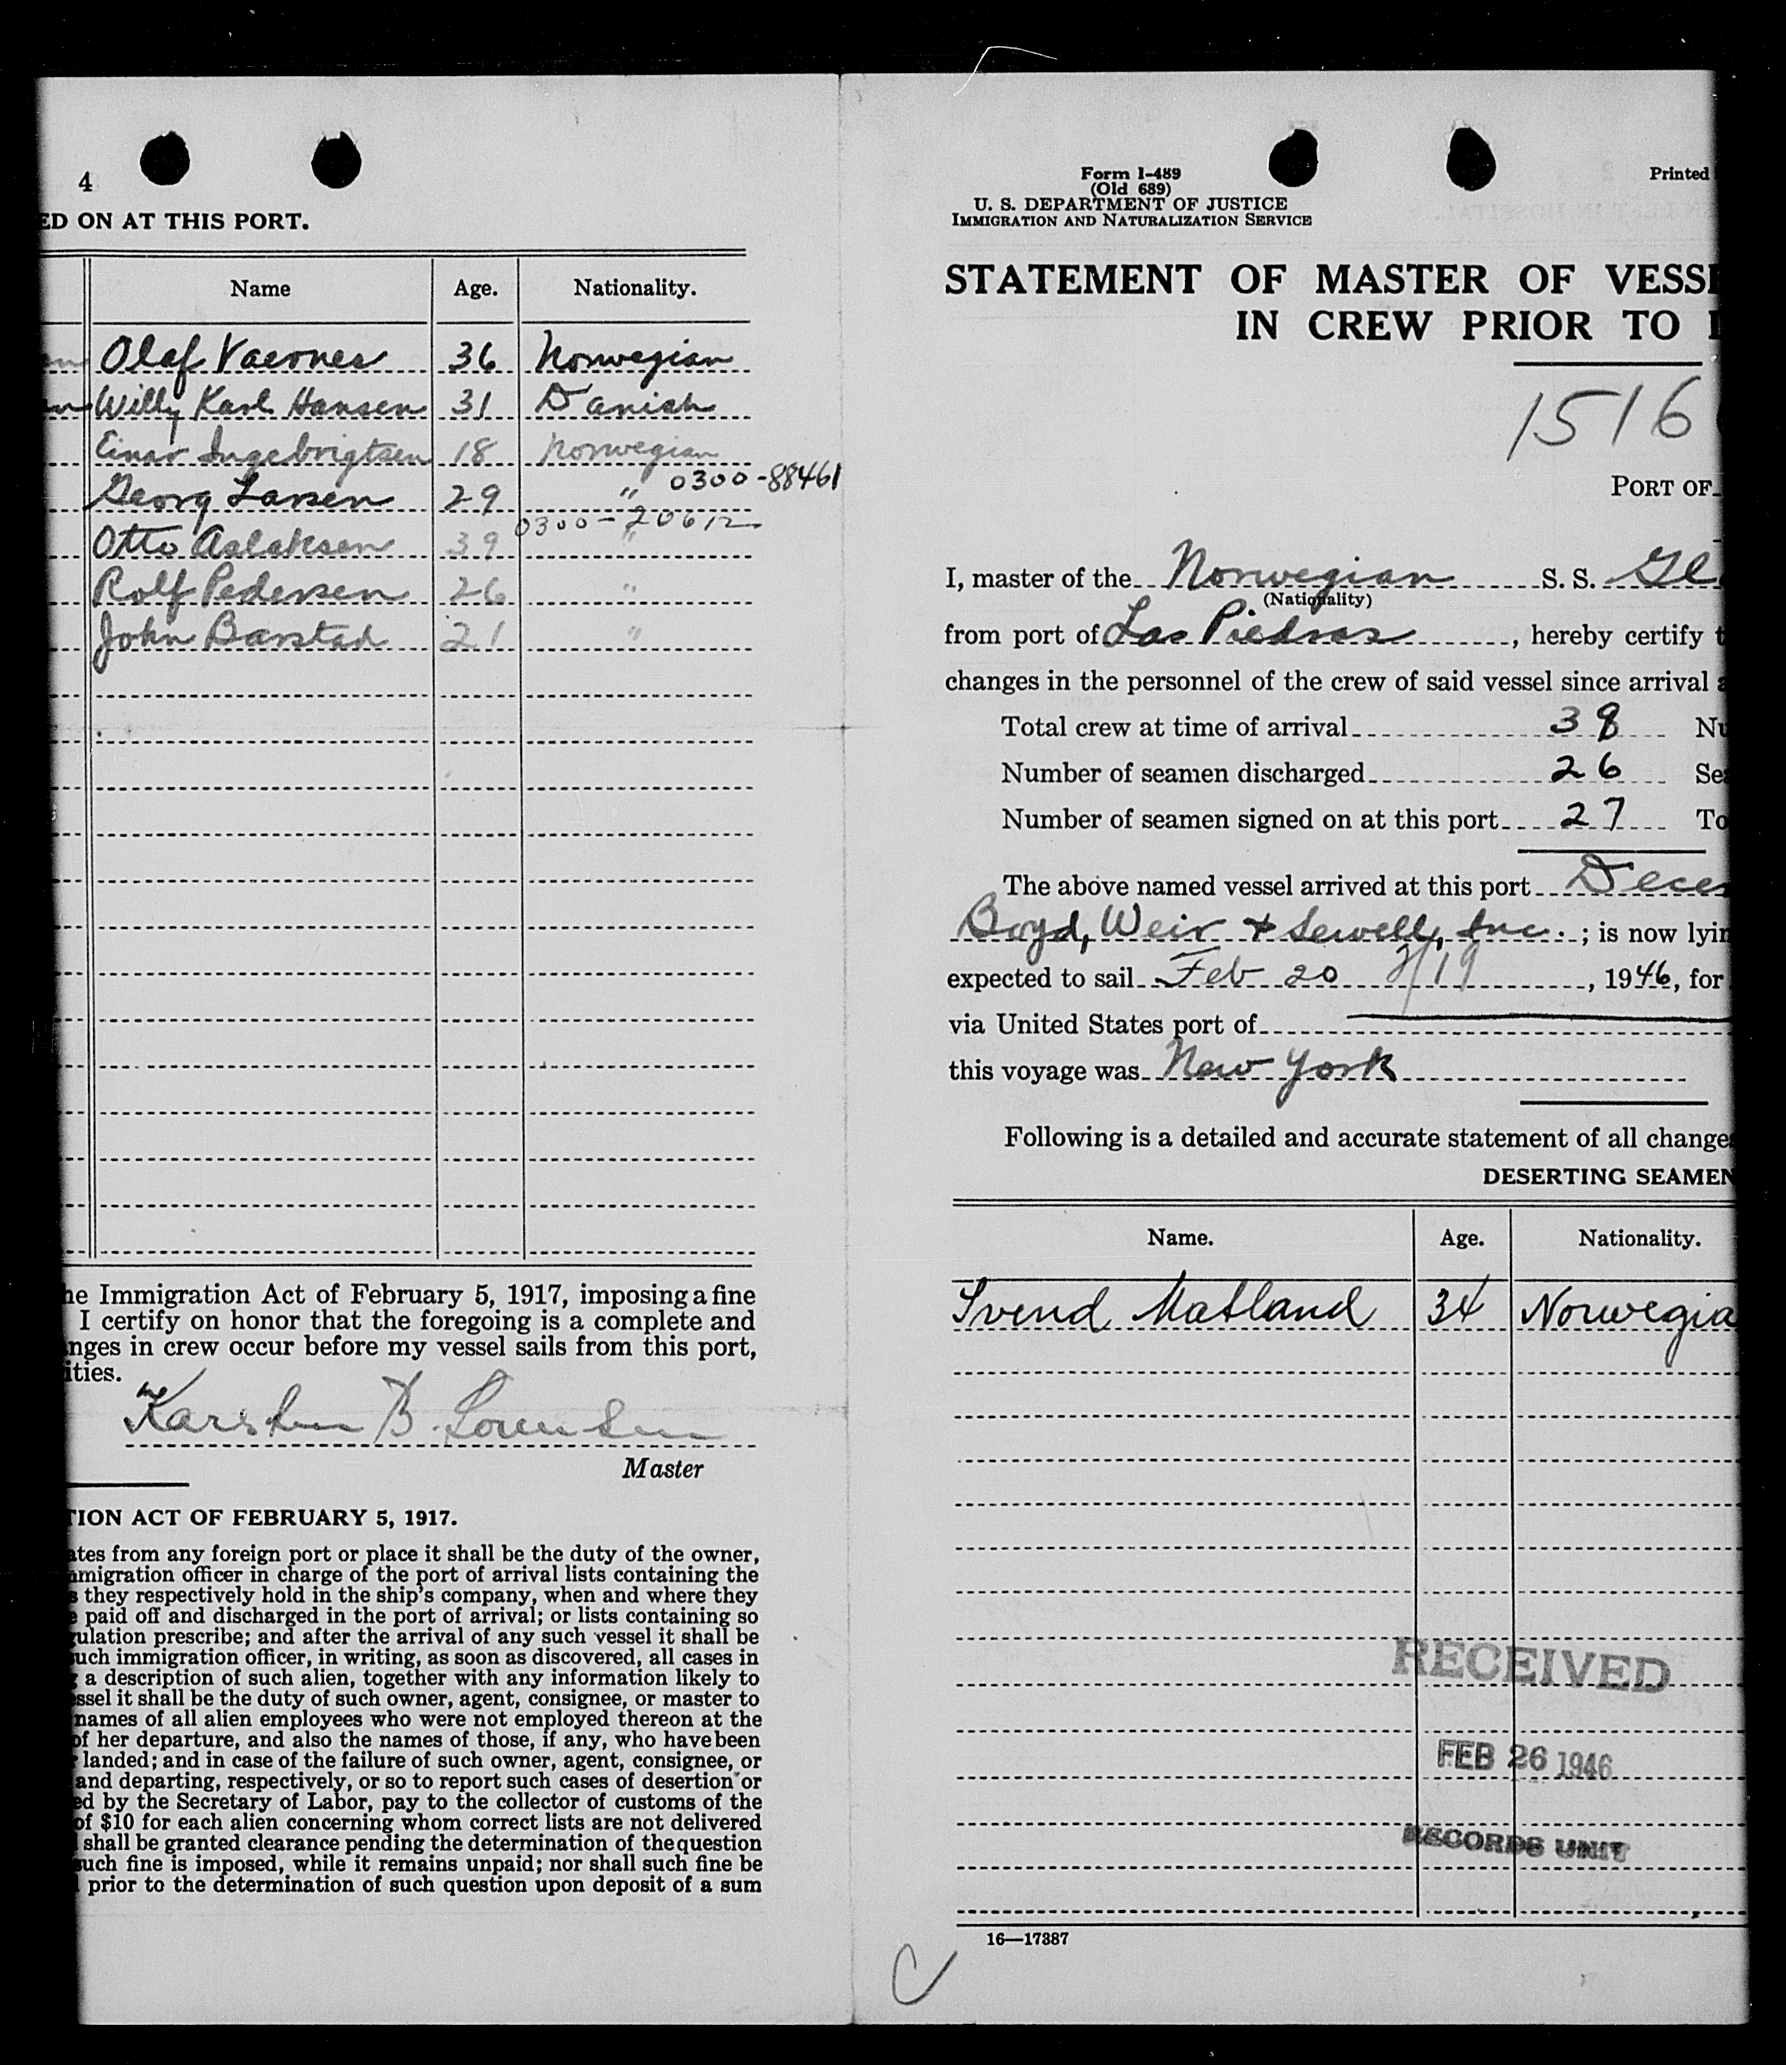 4
ED ON AT THIS PORT.
Name Age. Nationality.
Olaf Vaernes 36 Norwegian
Willy Karl Hansen 31 Danish
Einar Ingebrigtsen 18 Norwegian
Georg Larsen 29 " 0300-88461
0300-20612
Otto Aslaksen 39 "
Rolf Pedersen 26 "
John Barstad 21 "
he Immigration Act of February 5, 1917, imposing a fine
I certify on honor that the foregoing is a complete and
nges in crew occur before my vessel sails from this port,
ities.
Karsten B. Sorensen
Master
TION ACT OF FEBRUARY 5, 1917.
ates from any foreign port or place it shall be the duty of the owner,
migration officer in charge of the port of arrival lists containing the
s they respectively hold in the ship's company, when and where they
e paid off and discharged in the port of arrival; or lists containing so
gulation prescribe; and after the arrival of any such vessel it shall be
such immigration officer, in writing, as soon as discovered, all cases in
a description of such alien, together with any information likely to
ssel it shall be the duty of such owner, agent, consignee, or master to
names of all alien employees who were not employed thereon at the
of her departure, and also the names of those, if any, who have been
landed; and in case of the failure of such owner, agent, consignee, or
and departing, respectively, or so to report such cases of desertion or
ed by the Secretary of Labor, pay to the collector of customs of the
of $10 for each alien concerning whom correct lists are not delivered
shall be granted clearance pending the determination of the question
such fine is imposed, while it remains unpaid; nor shall such fine be
prior to the determination of such question upon deposit of a sum
Form I-489
(Old 689)
U. S. DEPARTMENT OF JUSTICE
IMMIGRATION AND NATURALIZATION SERVICE
Printed
STATEMENT OF MASTER OF VESSE
IN CREW PRIOR TO
1516
PORT OF
I, master of the Norwegian S. S. Gl
(Nationality)
from port of Las Piedras, hereby certify t
changes in the personnel of the crew of said vessel since arrival a
Total crew at time of arrival 38 Nu
Number of seamen discharged 26 Sea
Number of seamen signed on at this port 27 To
The above named vessel arrived at this port Decem
Boyd, Weir & Sewell, Inc.; is now lyin
expected to sail Feb 20 2/19, 1946, for
via United States port of
this voyage was New York
Following is a detailed and accurate statement of all change
DESERTING SEAMEN
Name. Age. Nationality.
Svend Matland 34 Norwegia
RECEIVED
FEB 26 1946
RECORDS UNIT
16—17387